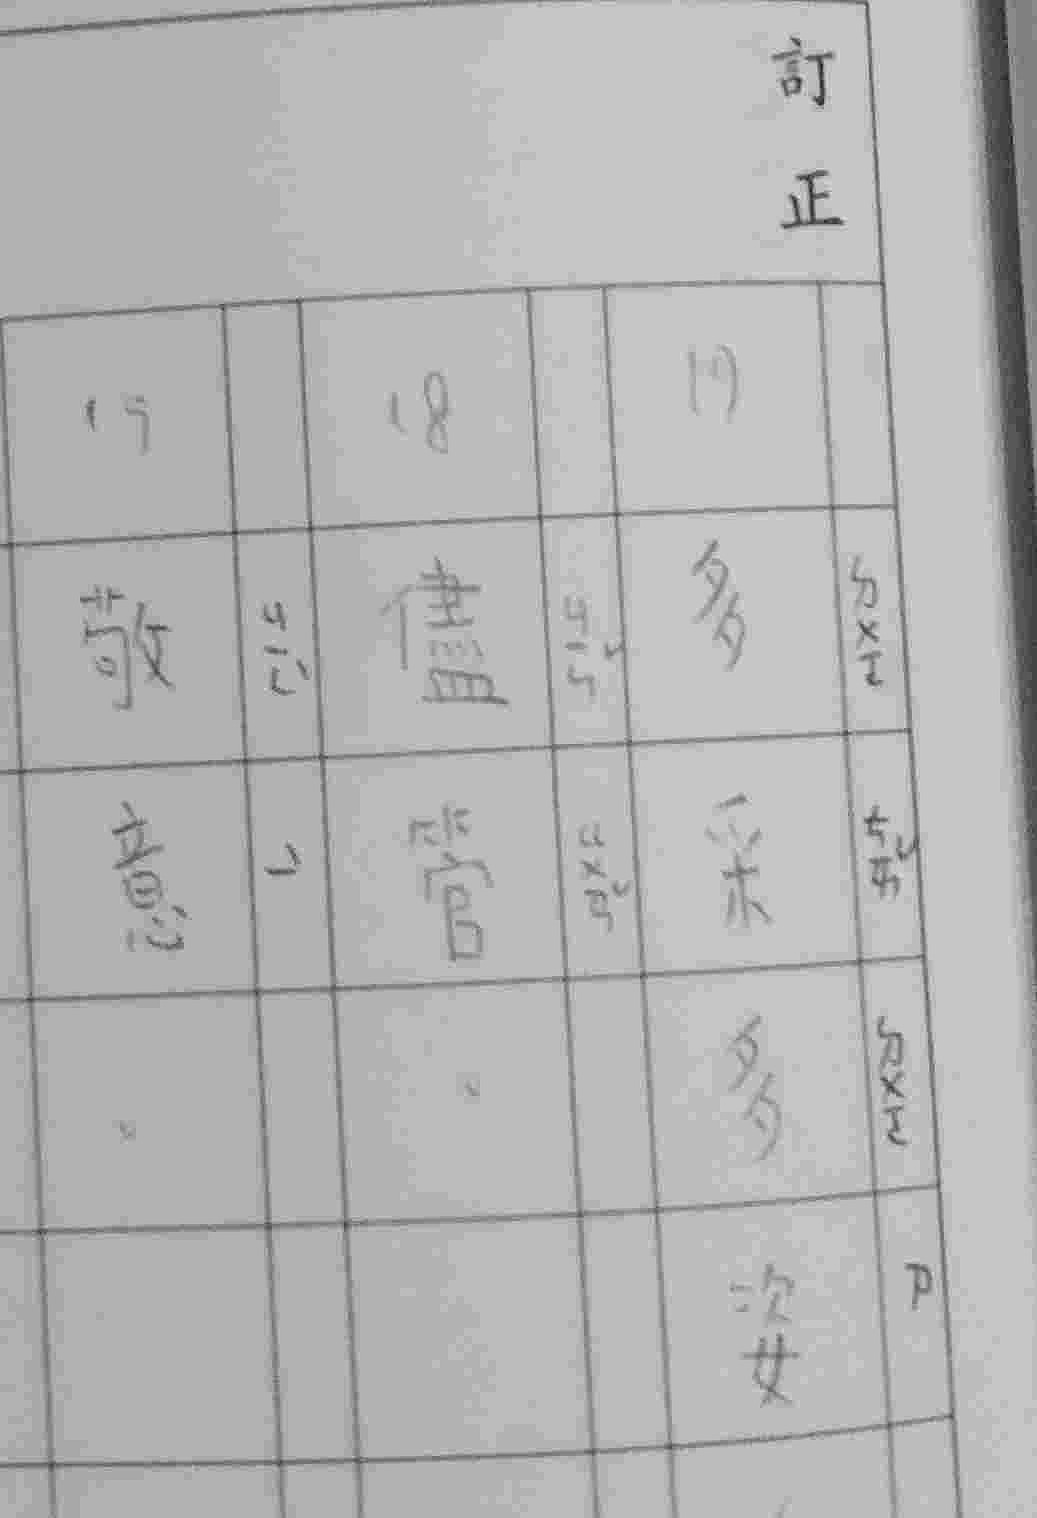 訂正
17 多采多姿
ㄉㄨㄛ ㄘㄞˇ ㄉㄨㄛ ㄗ
18 儘管。
ㄐㄧㄣˇ ㄍㄨㄢˇ
19 敬意。
ㄐㄧㄥˋ ㄧˋ